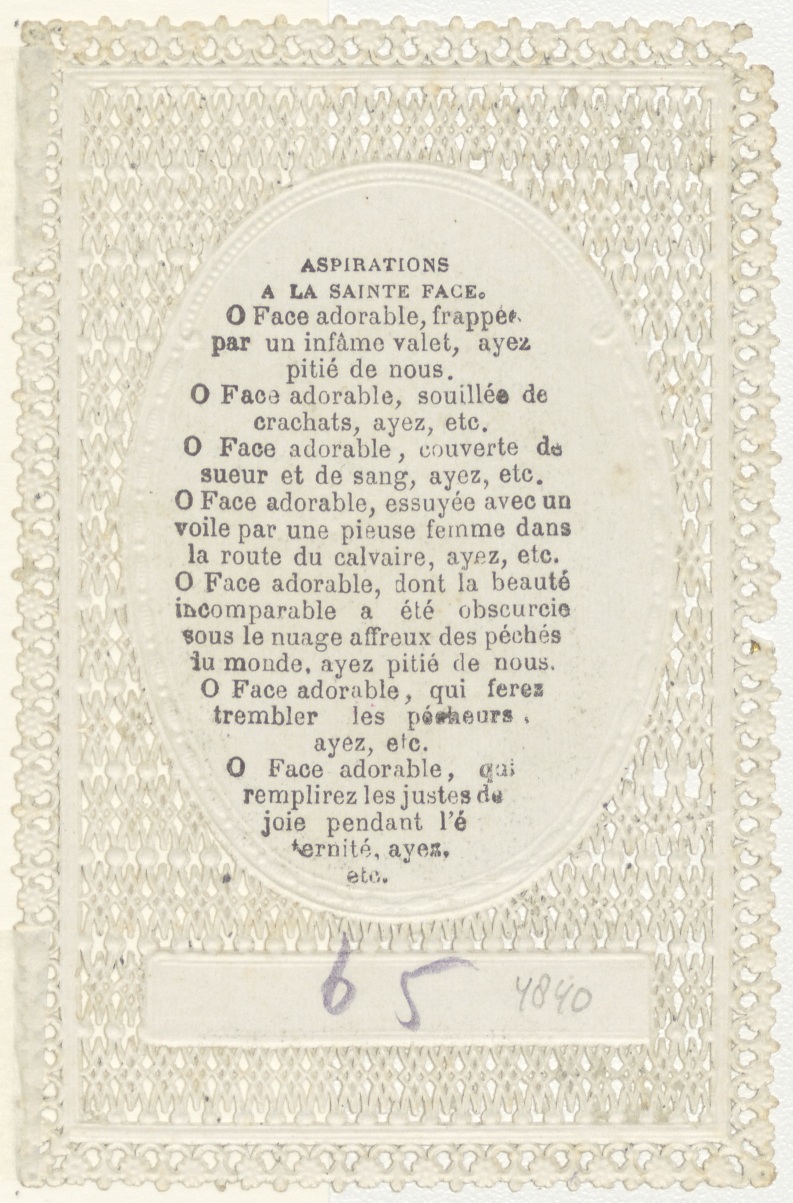 ASPIRATIONS
A LA SAINTE FACE.
O Face adorable, frappée
par un infâme valet, ayez
pitié de nous.
O Face adorable, souillée de
crachats, ayez, etc.
O Face adorable, couverte de
sueur et de sang, ayez, etc.
O Face adorable, essuyée avec un
voile par une pieuse femme dans
la route du calvaire, ayez, etc.
O Face adorable, dont la beauté
incomparable a été obscurcie
sous le nuage affreux des péchés
du monde, ayez pitié de nous.
O Face adorable, qui ferez
trembler les pécheurs,
ayez, etc.
O Face adorable, qui
remplirez les justes de
joie pendant l'é
ternité, ayez,
etc.
65 4840